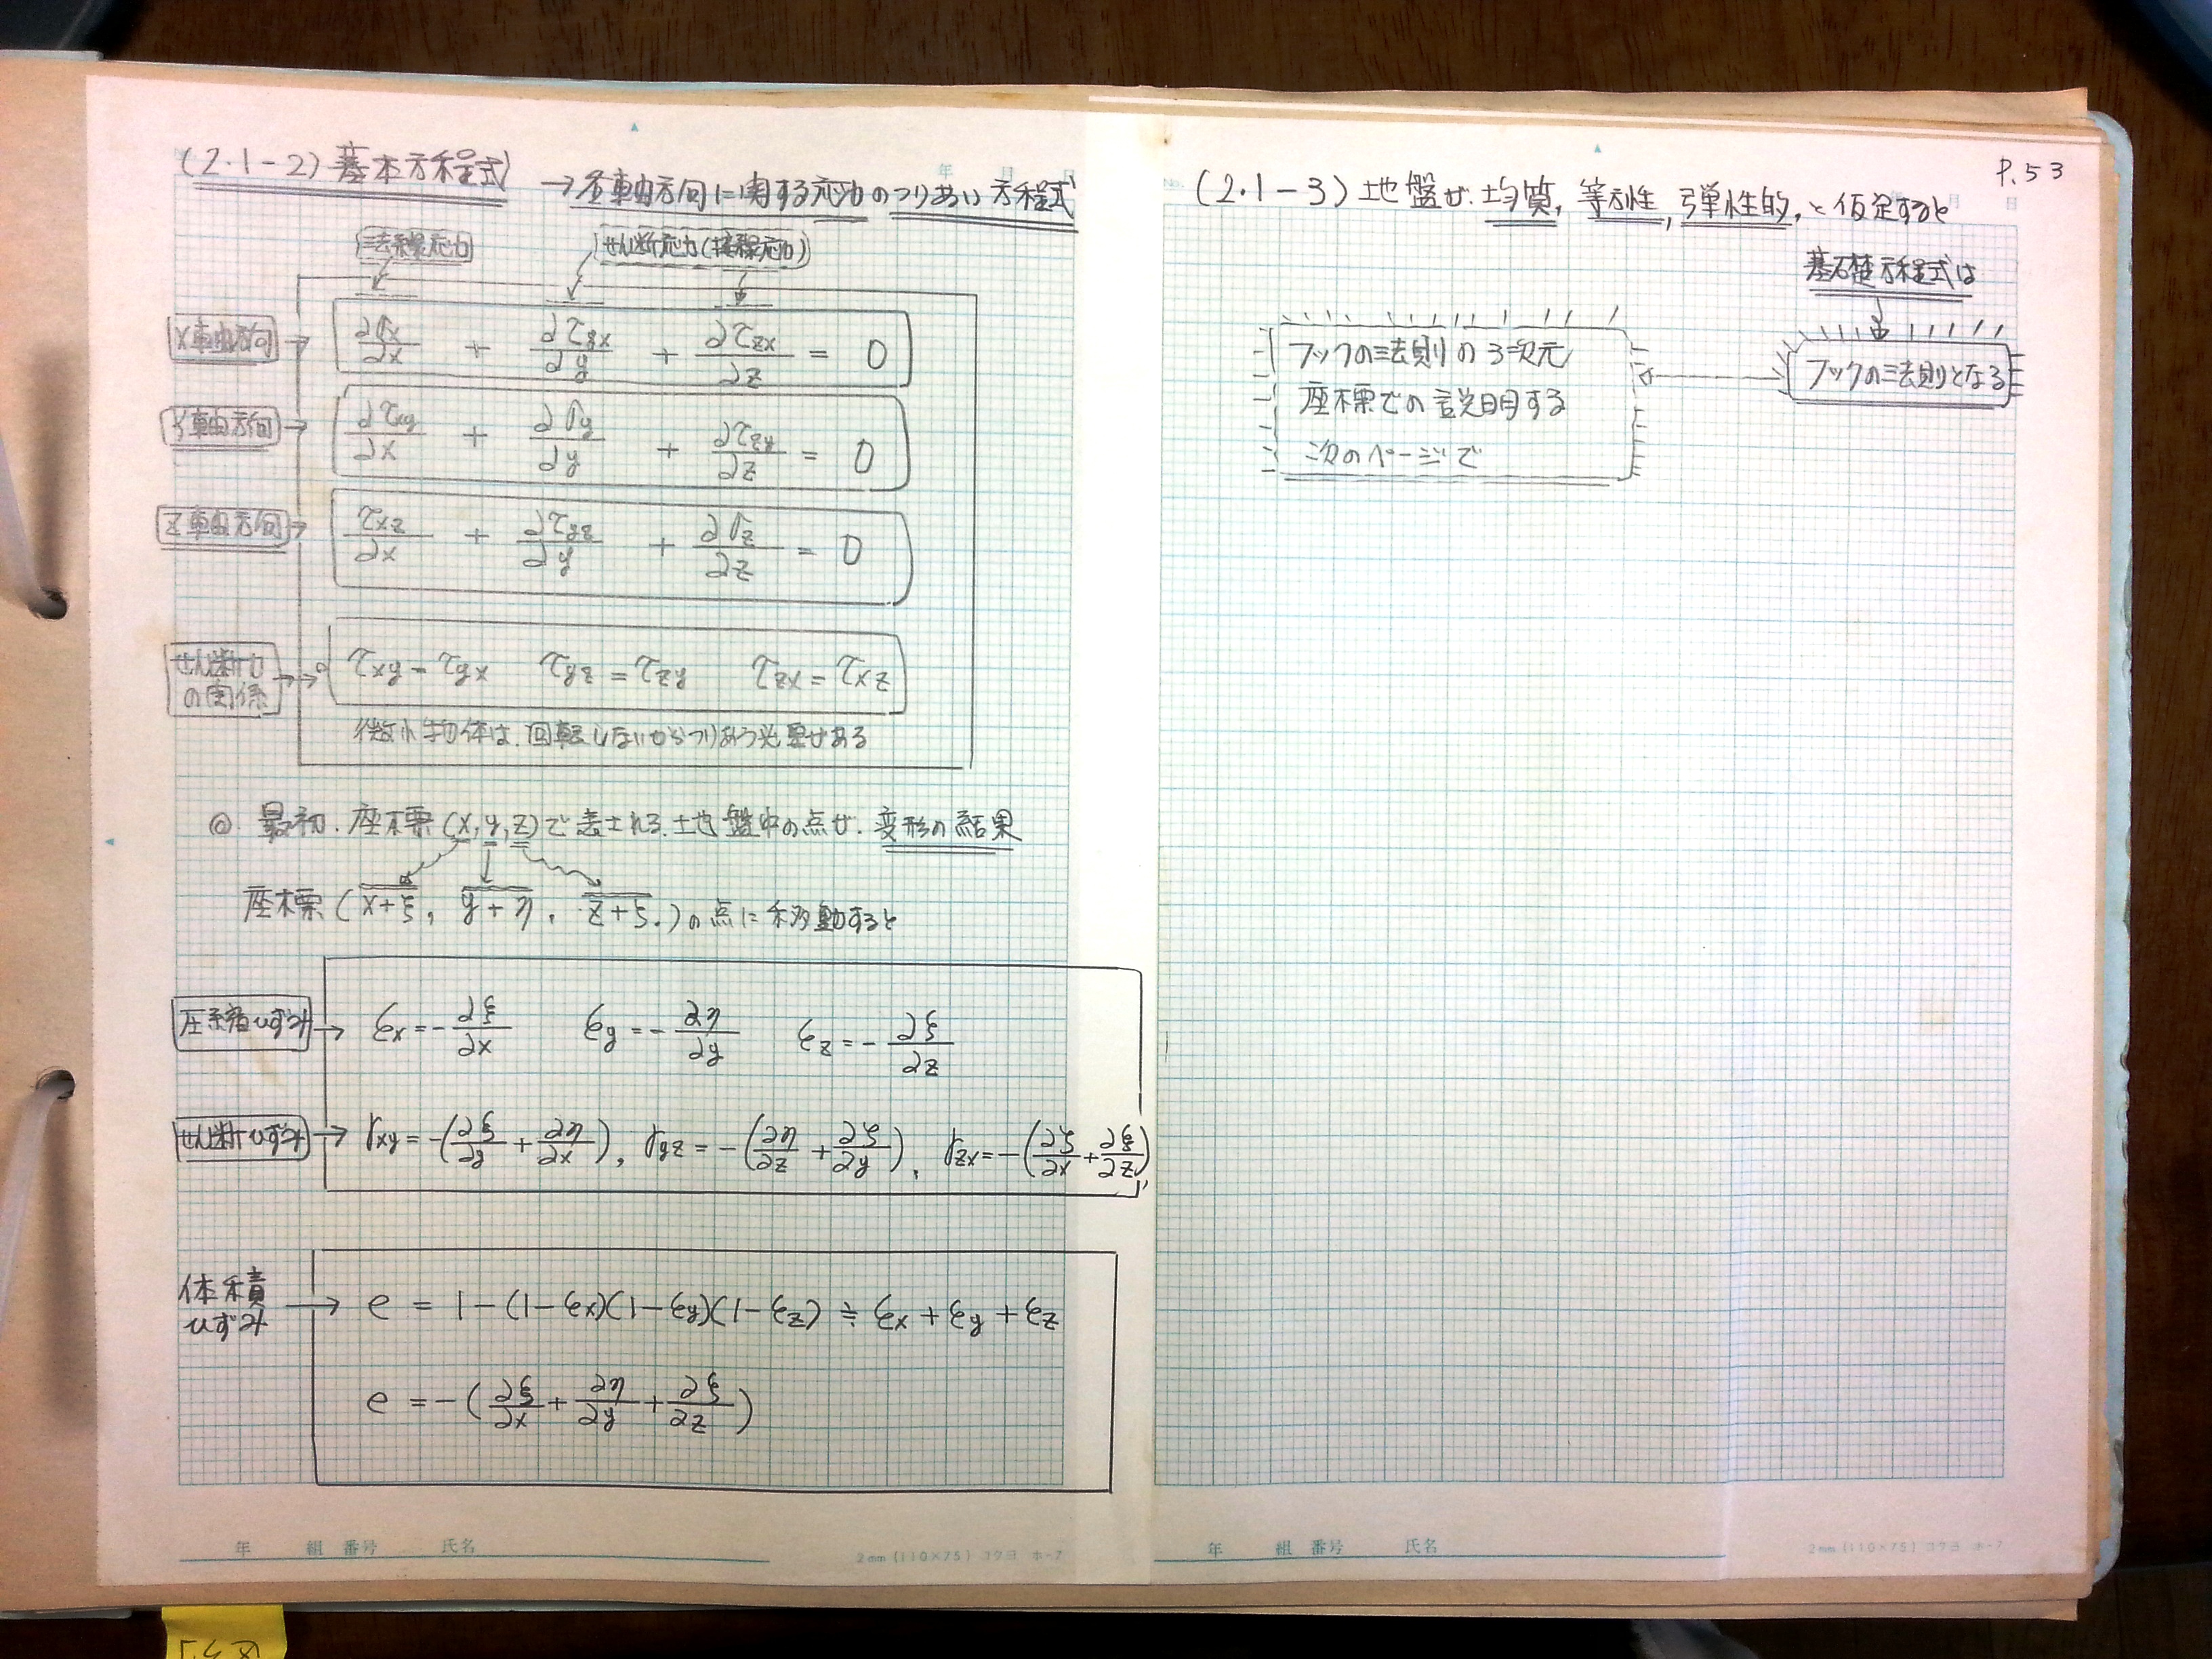 (2.1-2) 基本方程式 → 各軸方向に関する応力のつりあい方程式
法線応力 せん断応力(接線応力)
X軸方向 → ∂σx/∂x + ∂τyx/∂y + ∂τzx/∂z = 0
Y軸方向 → ∂τxy/∂x + ∂σy/∂y + ∂τzy/∂z = 0
Z軸方向 → τxz/∂x + ∂τyz/∂y + ∂σz/∂z = 0
せん断力の関係 → τxy = τyx τyz = τzy τzx = τxz
微小物体は、回転しないからつりあう必要がある
◎. 最初. 座標(x, y, z)で表される.土地盤中の点が. 変形の結果
座標(x+ξ, y+η, z+ζ.)の点に移動すると
圧縮ひずみ → εx = -∂ξ/∂x εy = -∂η/∂y εz = -∂ξ/∂z
せん断ひずみ → γxy = -(∂ξ/∂y + ∂η/∂x), γyz = -(∂η/∂z + ∂ζ/∂y), γzx = -(∂ζ/∂x + ∂ξ/∂z)
体積
ひずみ → e = 1-(1-εx)(1-εy)(1-εz) ≒ εx + εy + εz
e = -(∂ξ/∂x + ∂η/∂y + ∂ξ/∂z)
年 組 番号 氏名
2mm (110×75) コクヨ ホ-7
P.53
(2.1-3) 地盤が. 均質, 等方性, 弾性的, と仮定すると
基礎方程式は
フックの法則となる
フックの法則の3次元
座標での説明する
次のページで
年 組 番号 氏名
2mm (110×75) コクヨ ホ-7